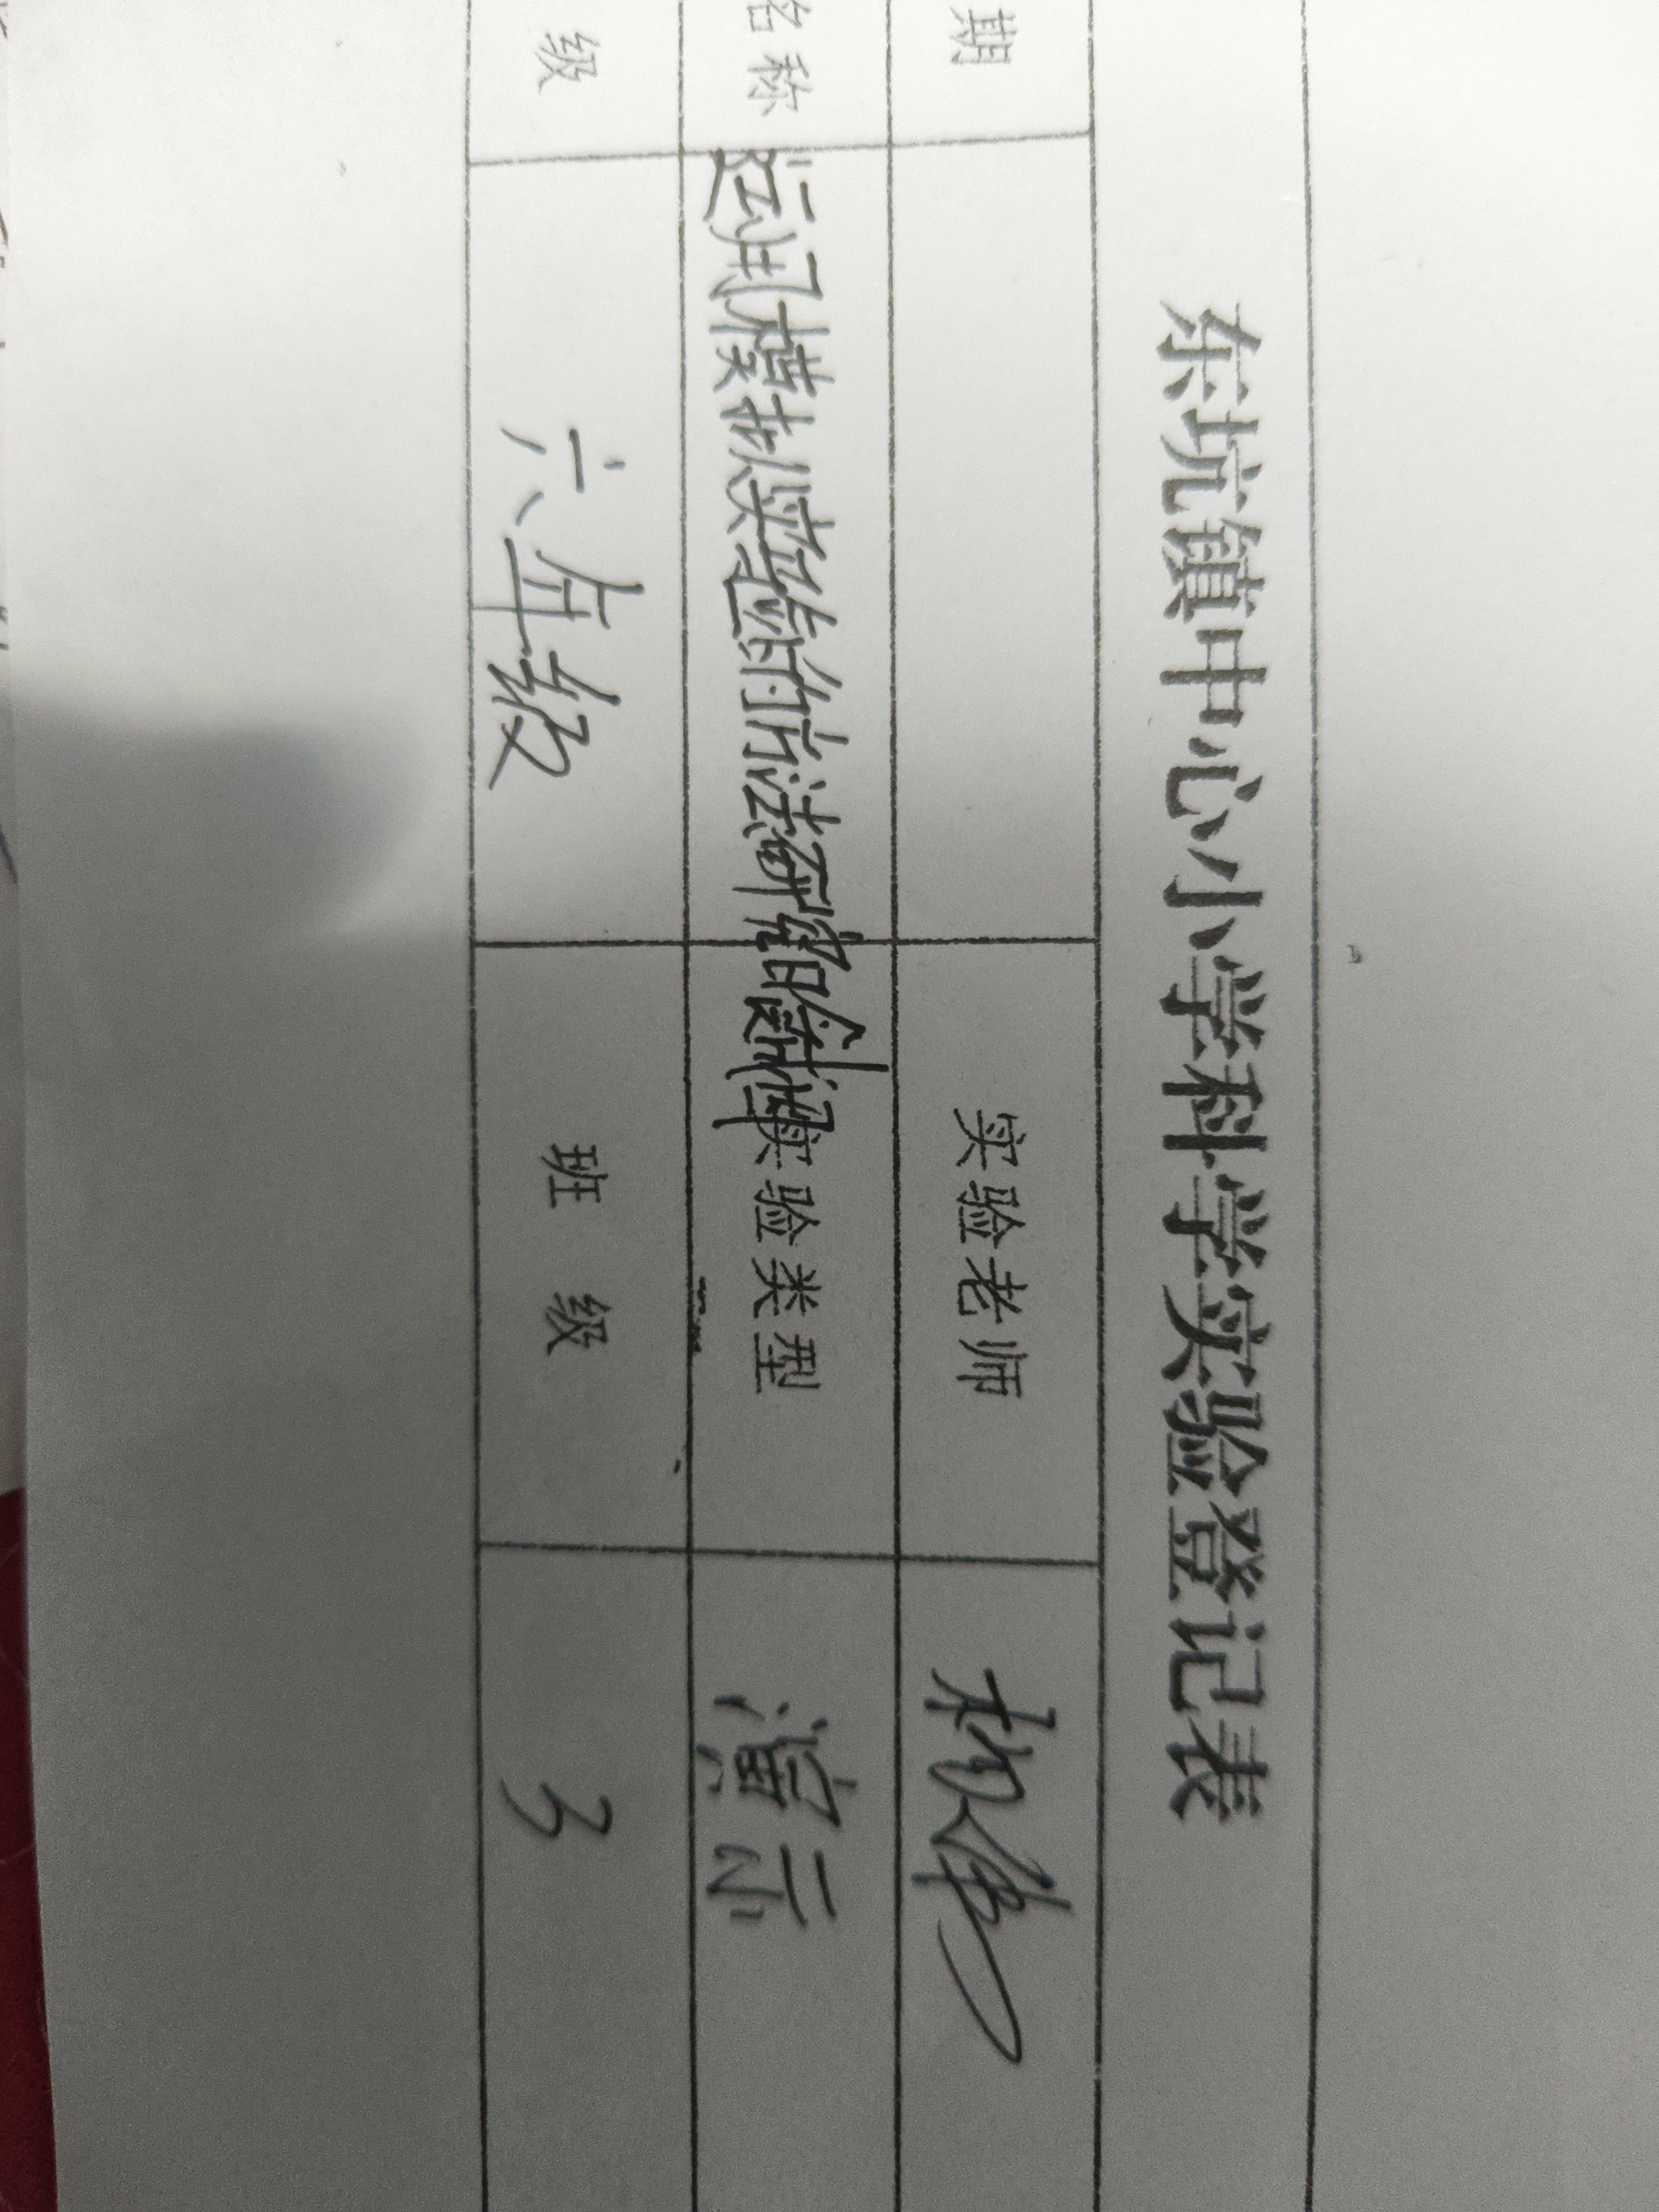 东坑镇中心小学科学实验登记表
期 实验老师
名称 运用模拟实验的方法研究 实验类型 演示
级 六年级 班级 3